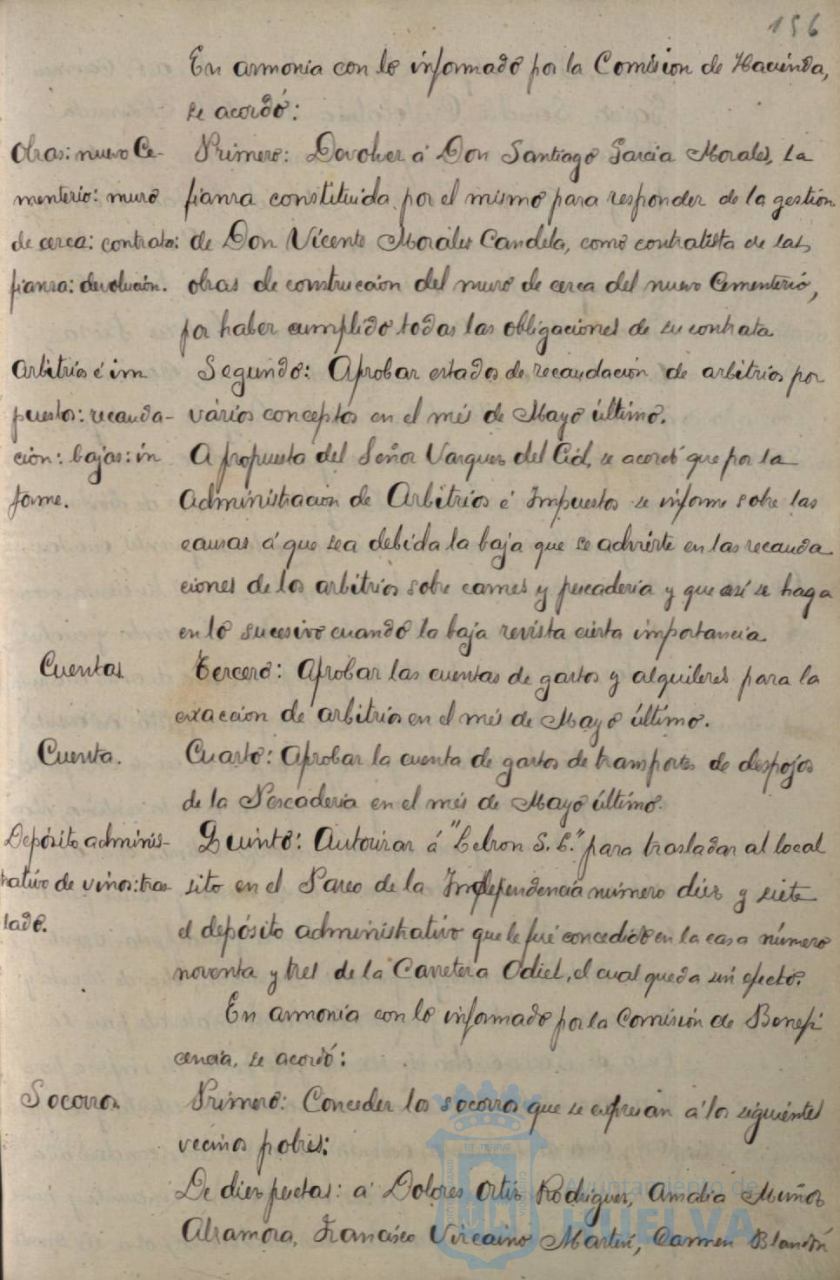 156
En armonía con lo informado por la Comision de Hacienda,
se acordó:
Obras: nuevo Ce-
menterio: muro
de cerca: contrato:
fianza: devolución.
Primero: Devolver á Don Santiago Garcia Morales, la
fianza constituida por el mismo para responder de la gestión
de Don Vicente Morales Candela, como contratista de las
obras de construccion del muro de cerca del nuevo Cementerio,
por haber cumplido todas las obligaciones de su contrata
Arbitrios é im
puestos: recauda-
cion: bajas: in
forme.
Segundo: Aprobar estados de recaudación de arbitrios por
vários conceptos en el més de Mayo último.
A propuesta del Señor Vazquez del Cid, se acordó que por la
Administracion de Arbitrios é Impuestos se informe sobre las
causas á que sea debida la baja que se advierte en las recauda
ciones de los arbitrios sobre carnes y pescaderia y que así se haga
en lo sucesivo cuando la baja revista cierta importancia
Cuentas
Tercero: Aprobar las cuentas de gastos y alquileres para la
exaccion de arbitrios en el més de Mayo último.
Cuenta.
Cuarto: Aprobar la cuenta de gastos de transportes de despojos
de la Pescaderia en el més de Mayo último.
Depósito adminis-
trativo de vinos: tras-
lado.
Quinto: Autorizar á "Lebron S. L." para trasladar al local
sito en el Paseo de la Independencia número diez y siete
el depósito administrativo que le fué concedido en la casa número
noventa y tres de la Carretera Odiel, el cual queda sin efecto.
En armonía con lo informado por la Comisión de Benefi
cencia, se acordó:
Socorros.
Primero: Conceder los socorros que se expresan á los siguientes
vecinos pobres:
De diez pesetas: á Dolores Ortiz Rodriguez, Amalia Muñoz
Alzamora, Francisco Vizcaino Martin, Carmen Blandón
Ayuntamiento de
HUELVA